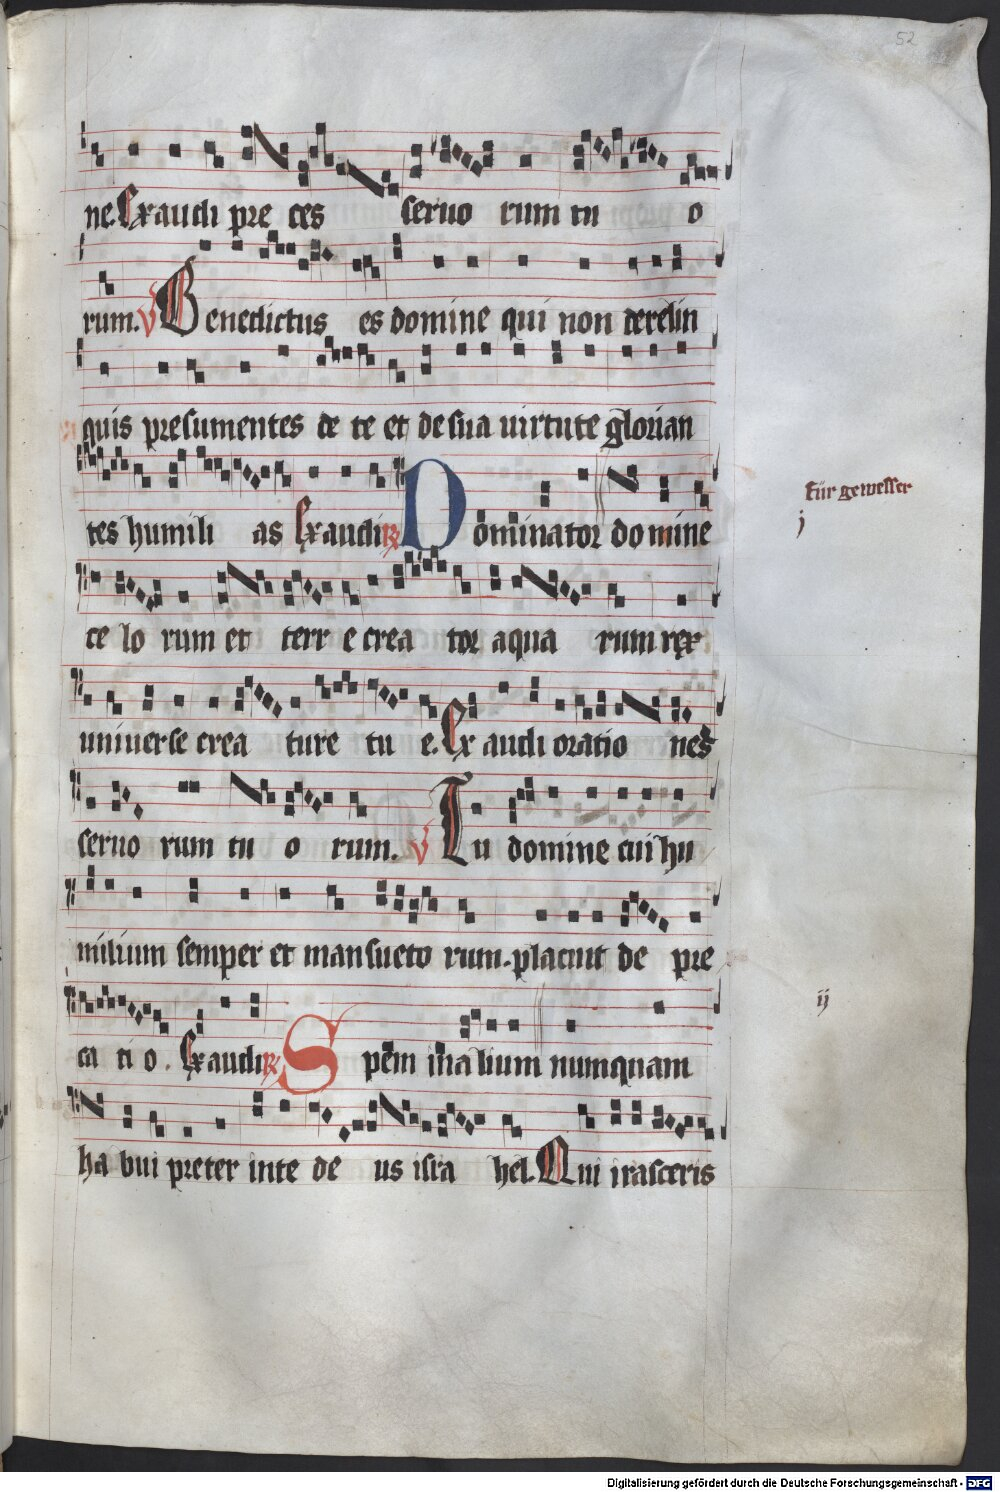 52
ne. Exaudi pre ces seruo rum tu o
rum. V Benedictus es domine qui non derelin
quis presumentes de te et de sua uirtute glorian
tes humili as Exaudi R Dominator domine
für gewesser
j
ce lo rum et terr e crea tor aqua rum rex
uniuerse crea ture tu e. Ex audi oratio nes
seruo rum tu o rum. V Tu domine cui hu
milium semper et mansueto rum. placuit de pre
ca ti o. Exaudi R Spem in alium numquam
ij
ha bui preter in te de us isra hel. Qui irasceris
Digitalisierung gefördert durch die Deutsche Forschungsgemeinschaft - DFG